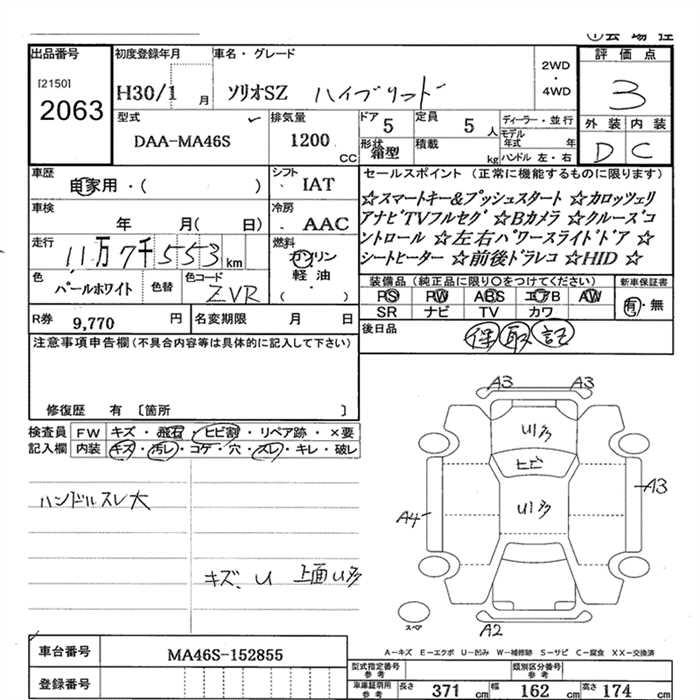 出品番号 初度登録年月 車名・グレード 2WD・4WD 評価点
[2150]
2063 H30/1 月 ソリオSZ ハイブリッド 3
型式 排気量 ドア 定員 ディーラー・並行 外装 内装
DAA-MA46S 1200 CC 5 5人 モデル年式 年 D C
形状 箱型 積載 kg ハンドル 左・右
車歴 シフト セールスポイント (正常に機能するものに限ります)
自家用・( ) IAT ☆スマートキー&プッシュスタート ☆カロッツェリ
車検 冷房 アナビTVフルセグ ☆Bカメラ ☆クルーズコ
年 月( 日) AAC ントロール ☆左右パワースライドドア ☆
走行 燃料 シートヒーター ☆前後ドラレコ ☆HID ☆
11万7千553km ガソリン
軽油
( ・ )
色 色替 色コード 装備品 (純正品に限り○をつけてください) 新車保証書
パールホワイト ZVR PS PW ABS エアB AW 有・無
SR ナビ TV カワ
R券 9,770 円 名変期限 月 日 後日品 保 取 記
注意事項申告欄(不具合内容等は具体的に記入して下さい)
修復歴 有 [箇所 ]
検査員 FW キズ・飛石・ヒビ割・リペア跡・×要
記入欄 内装 キズ・汚レ・コゲ・穴・スレ・キレ・破レ
ハンドルスレ大
キズ、U 上面U多
A3 A3
U1多
ヒビ
A3
U1多
A4
A2
スペア
A-キズ E-エクボ U-凹み W-補修跡 S-サビ C-腐食 XX-交換済
車台番号 MA46S-152855
登録番号
型式指定番号 参考 類別区分番号 参考
車庫証明用 参考 長さ 371 cm 幅 162 cm 高さ 174 cm